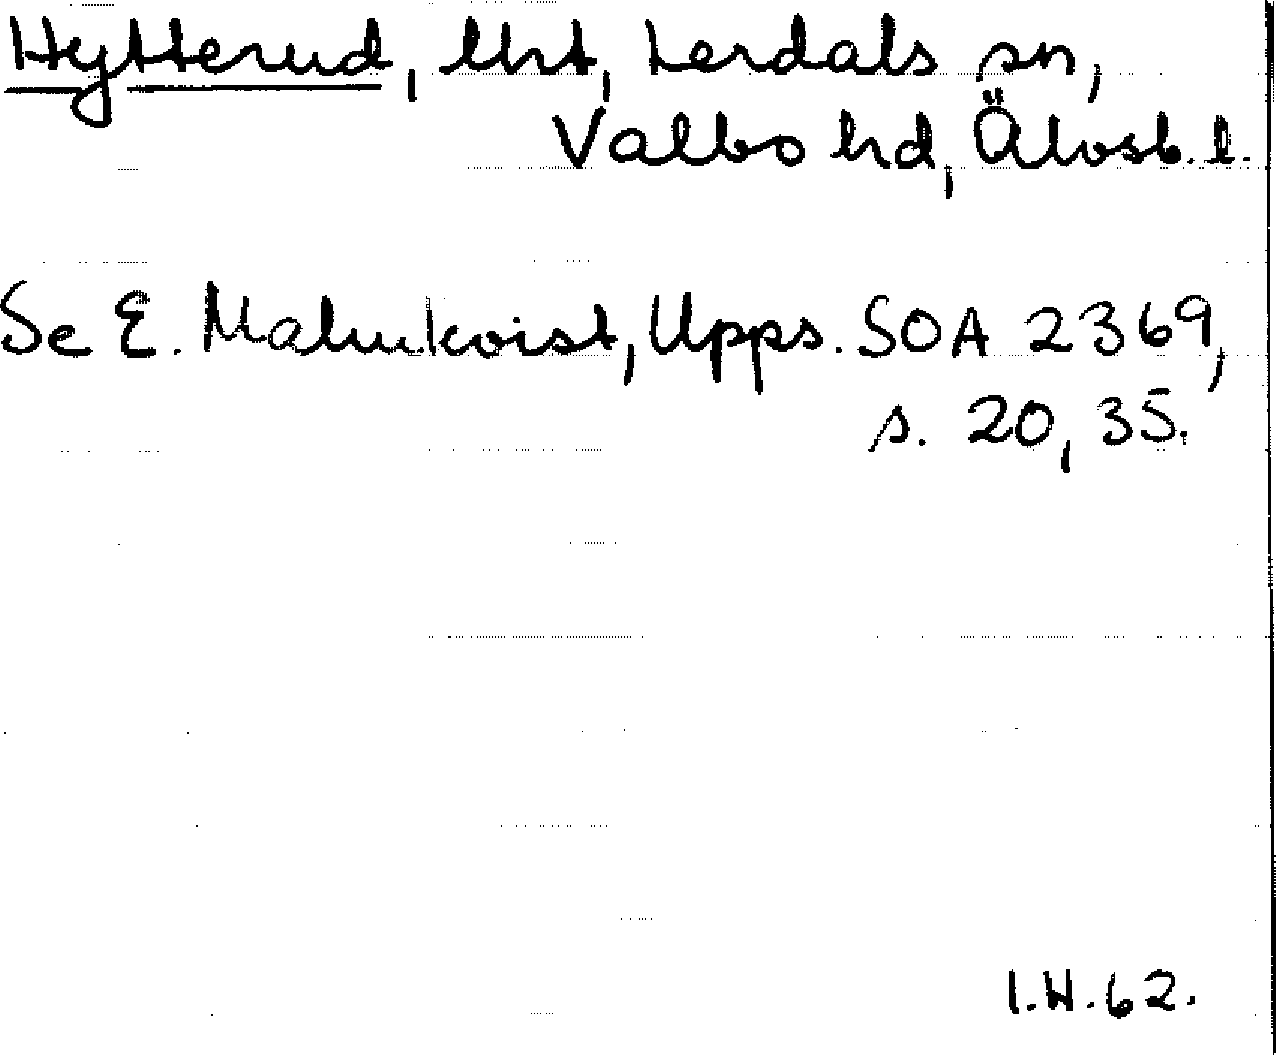 Hytterud, lht, Lerdals sn,
Valbo hd, Älvsb. l.
Se E. Malmkvist, Upps. SOA 2369,
s. 20, 35.
I.H. 62.